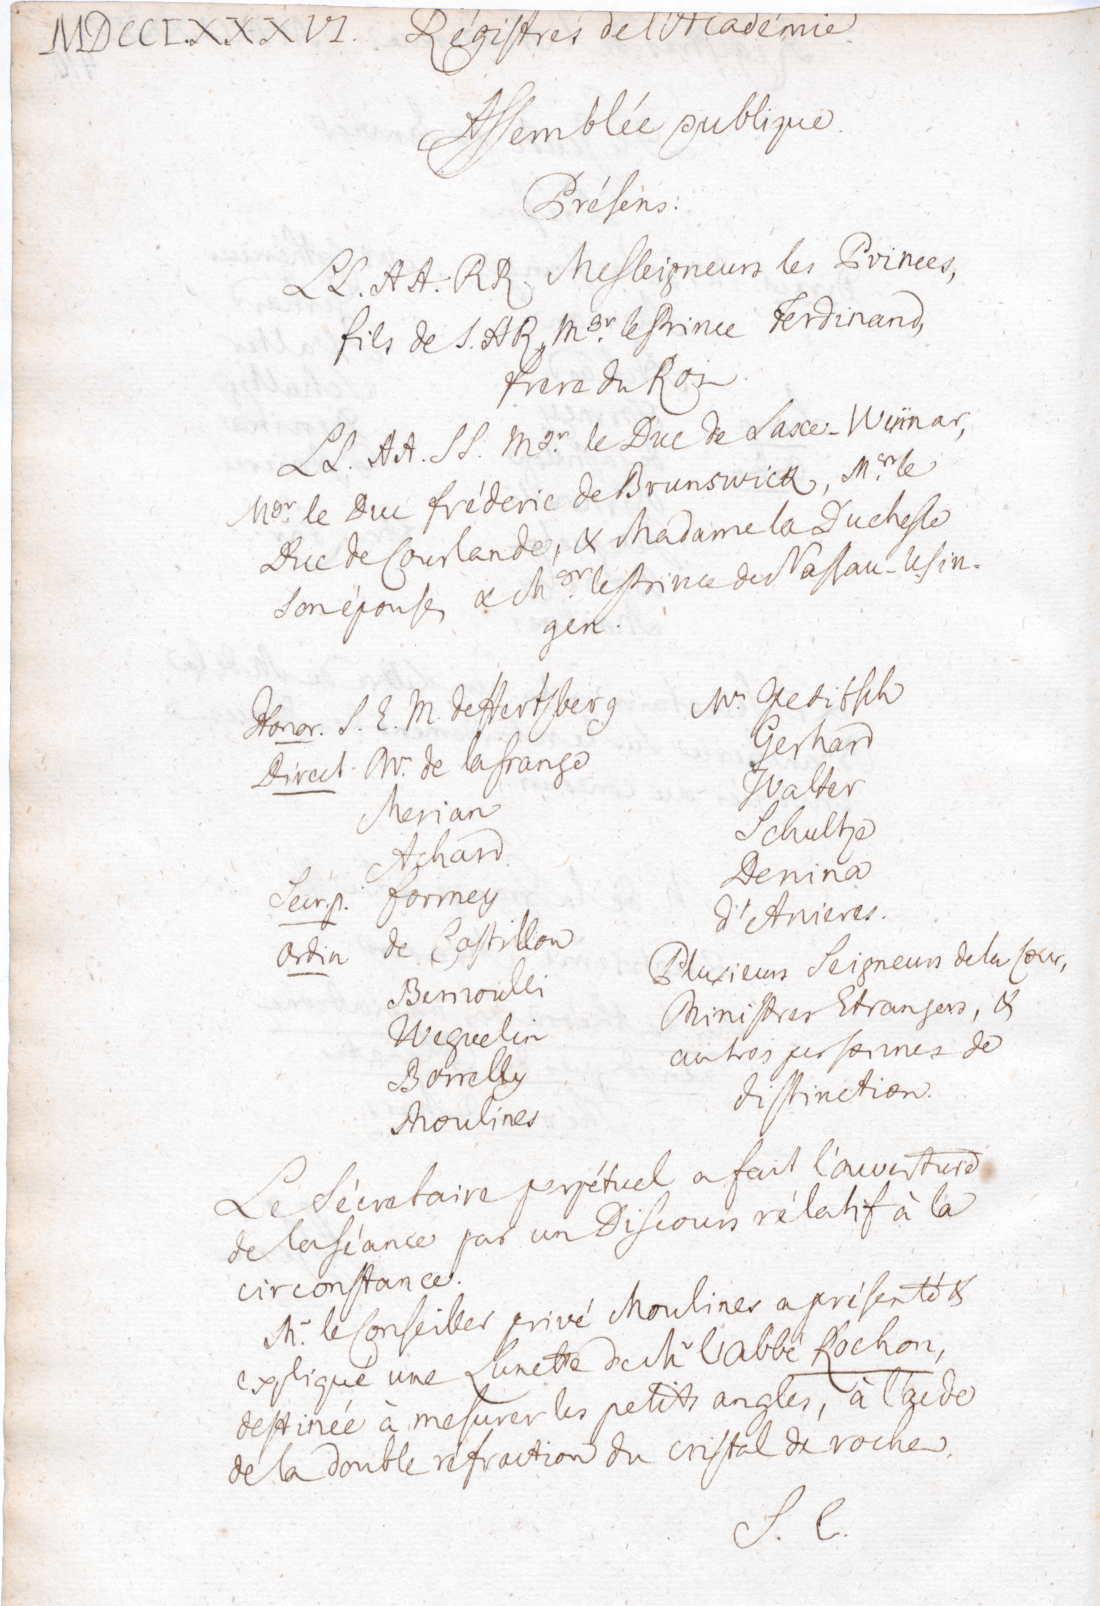 MDCCLXXXVI. Régistres de l'Académie.
Assemblée publique.
Présens:
LL. AA. RR. Messeigneurs les Princes,
fils de S. AR. Mgr. le Prince Ferdinand,
frere du Roi.
LL. AA. SS. Mgr. le Duc de Saxe-Weimar,
Mgr. le Duc fréderic de Brunswick, Mgr. le
Duc de Courlande, & Madame la Duchesse
son épouse, & Mgr. le Prince de Nassau-Usin-
gen.
Honor. S. E. M. de Hertsberg
Direct. Mr. de la Grange
Merian
Achard
Secr. p. formey
Ordin de Castillon
Bernoulli
Weguelin
Borrelly
Moulines
Mrs Gleditsch
Gerhard
Walter
Schultze
Denina
d'Anieres.
Plusieurs Seigneurs de la Cour,
Ministres Etrangers, &
autres personnes de
distinction.
Le Sécretaire perpétuel a fait l'ouverture
de la séance par un Discours rélatif à la
circonstance.
Mr. le Conseiller privé Moulines a présenté &
expliqué une Lunette de Mr l'abbé Rochon,
destinée à mesurer les petits angles, à l'aide
de la double réfraction du cristal de roche.